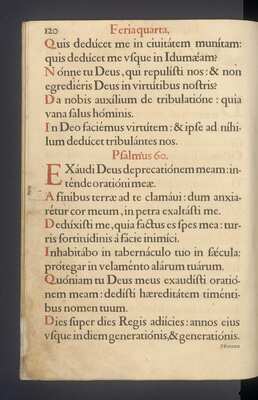 120 Feria quarta,
Quis dedúcet me in ciuitátem munítam:
quis dedúcet me vſque in Idumæam?
Nónne tu Deus, qui repulíſti nos: & non
egrediéris Deus in virtútibus noſtris?
Da nobis auxílium de tribulatióne: quia
vana ſalus hóminis.
In Deo faciémus virtútem: & ipſe ad níhi-
lum dedúcet tribulántes nos.
Pſalmus 60.
EXáudi Deus deprecatiónem meam: in-
ténde oratióni meæ.
A finibus terræ ad te clamáui: dum anxia-
rétur cor meum, in petra exaltáſti me.
Deduxíſti me, quia factus es ſpes mea: tur-
ris fortitúdinis à fácie inimíci.
Inhabitábo in tabernáculo tuo in ſæcula:
prótegar in velaménto alárum tuárum.
Quóniam tu Deus meus exaudíſti oratió-
nem meam: dedíſti hæreditátem timénti-
bus nomen tuum.
Dies ſuper dies Regis adiícies: annos eius
vſque in diem generatiónis, & generatiónis.